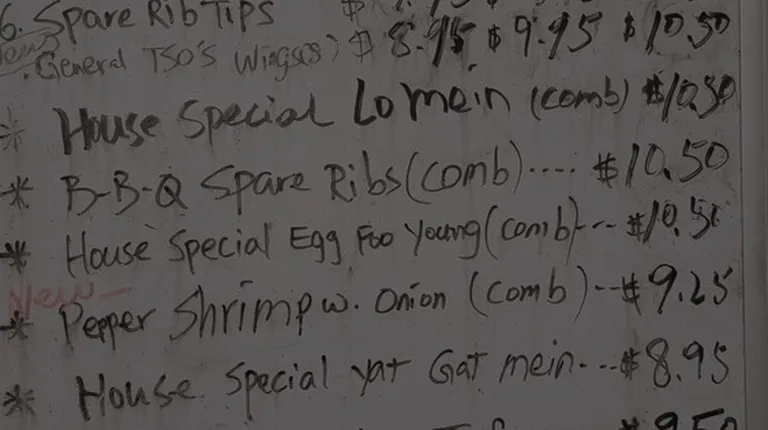 6. Spare Rib Tips
New General TSO'S Wings(8) $8.95 $9.95 $10.50
* House Special Lo mein (comb) $10.50
* B-B-Q Spare Ribs (comb) .... $10.50
* House Special Egg Foo Young (comb) --- $10.50
New
* Pepper Shrimp w. Onion (comb) -- $9.25
* House Special yat Gat mein --- $8.95
9.50